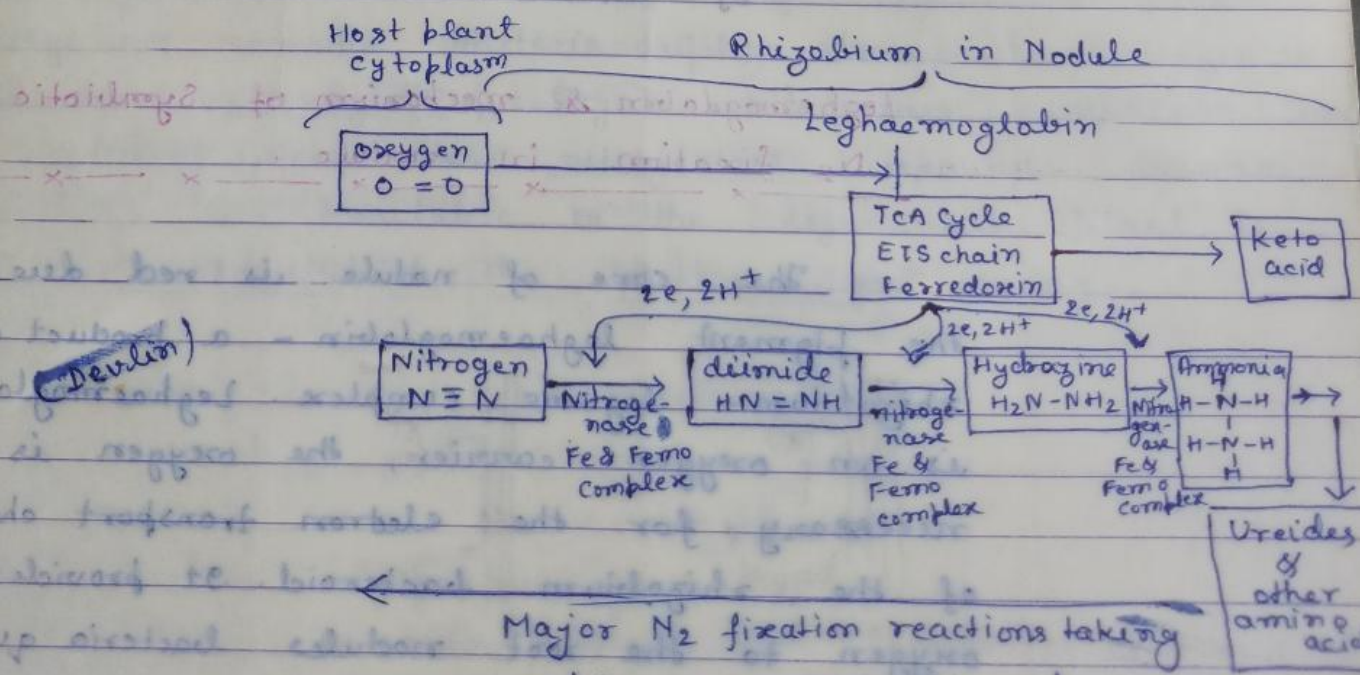 Host plant
cytoplasm
Rhizobium in Nodule
Leghaemoglobin
Oxygen
O = O
TCA Cycle
ETS chain
Ferredoxin
Keto
acid
2e, 2H+
2e, 2H+
2e, 2H+
(Devlin)
Nitrogen
N ≡ N
Nitroge-
nase
Fe & Femo
Complex
diimide
HN = NH
nitroge-
nase
Fe &
Femo
complex
Hydrazine
H2N-NH2
Nitro
gen-
ase
Fe &
Femo
complex
Ammonia
H-N-H
H-N-H
H
Ureides
&
other
amino
acid
Major N2 fixation reactions taking